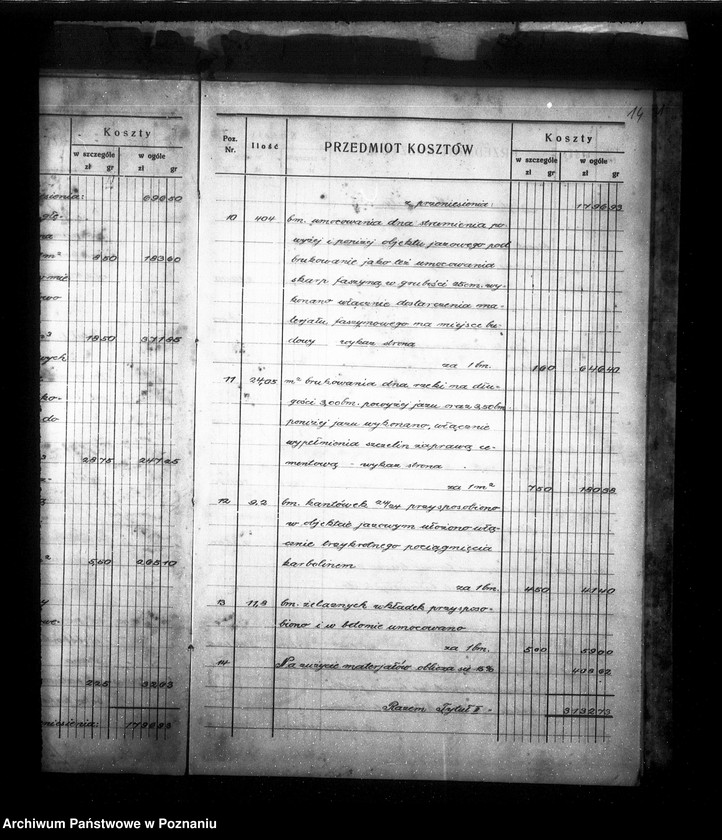 Koszty
w szczególe w ogóle
zł gr zł gr
69650
m² 850 18360
1850 37185
2875 24725
560 20510
225 3293
179693
14
Poz. Nr. Ilość PRZEDMIOT KOSZTÓW Koszty
w szczególe w ogóle
zł gr zł gr
z przeniesienia: 179693
10 404 bm. umocowania dna strumienia po-
wyżej i poniżej objektu jazowego pod
brukowanie jako też umocowania
skarp faszyną w grubości 25cm. wy-
konano włącznie dostarczenia ma-
terjału faszynowego na miejsce bu-
dowy wykaz strona
za 1 bm. 160 64640
11 24,05 m² brukowania dna rzeki na dłu-
gości 3,00bm. powyżej jazu oraz 3,50bm
poniżej jazu wykonano, włącznie
wypełnienia szczelin zaprawą ce-
mentową - wykaz strona
za 1 m² 750 18038
12 9,2 bm. kantówek 24/24 przysposobiono
w objekcie jazowym ułożono włą-
cznie trzykrotnego pociągnięcia
karbolinem
za 1 bm. 450 4140
13 11,8 bm. żelaznych wkładek przysposo-
biono i w betonie umocowano
za 1 bm. 500 5900
14 Na zużycie materjałów oblicza się 15%
Razem Tytuł II - 313273
Archiwum Państwowe w Poznaniu